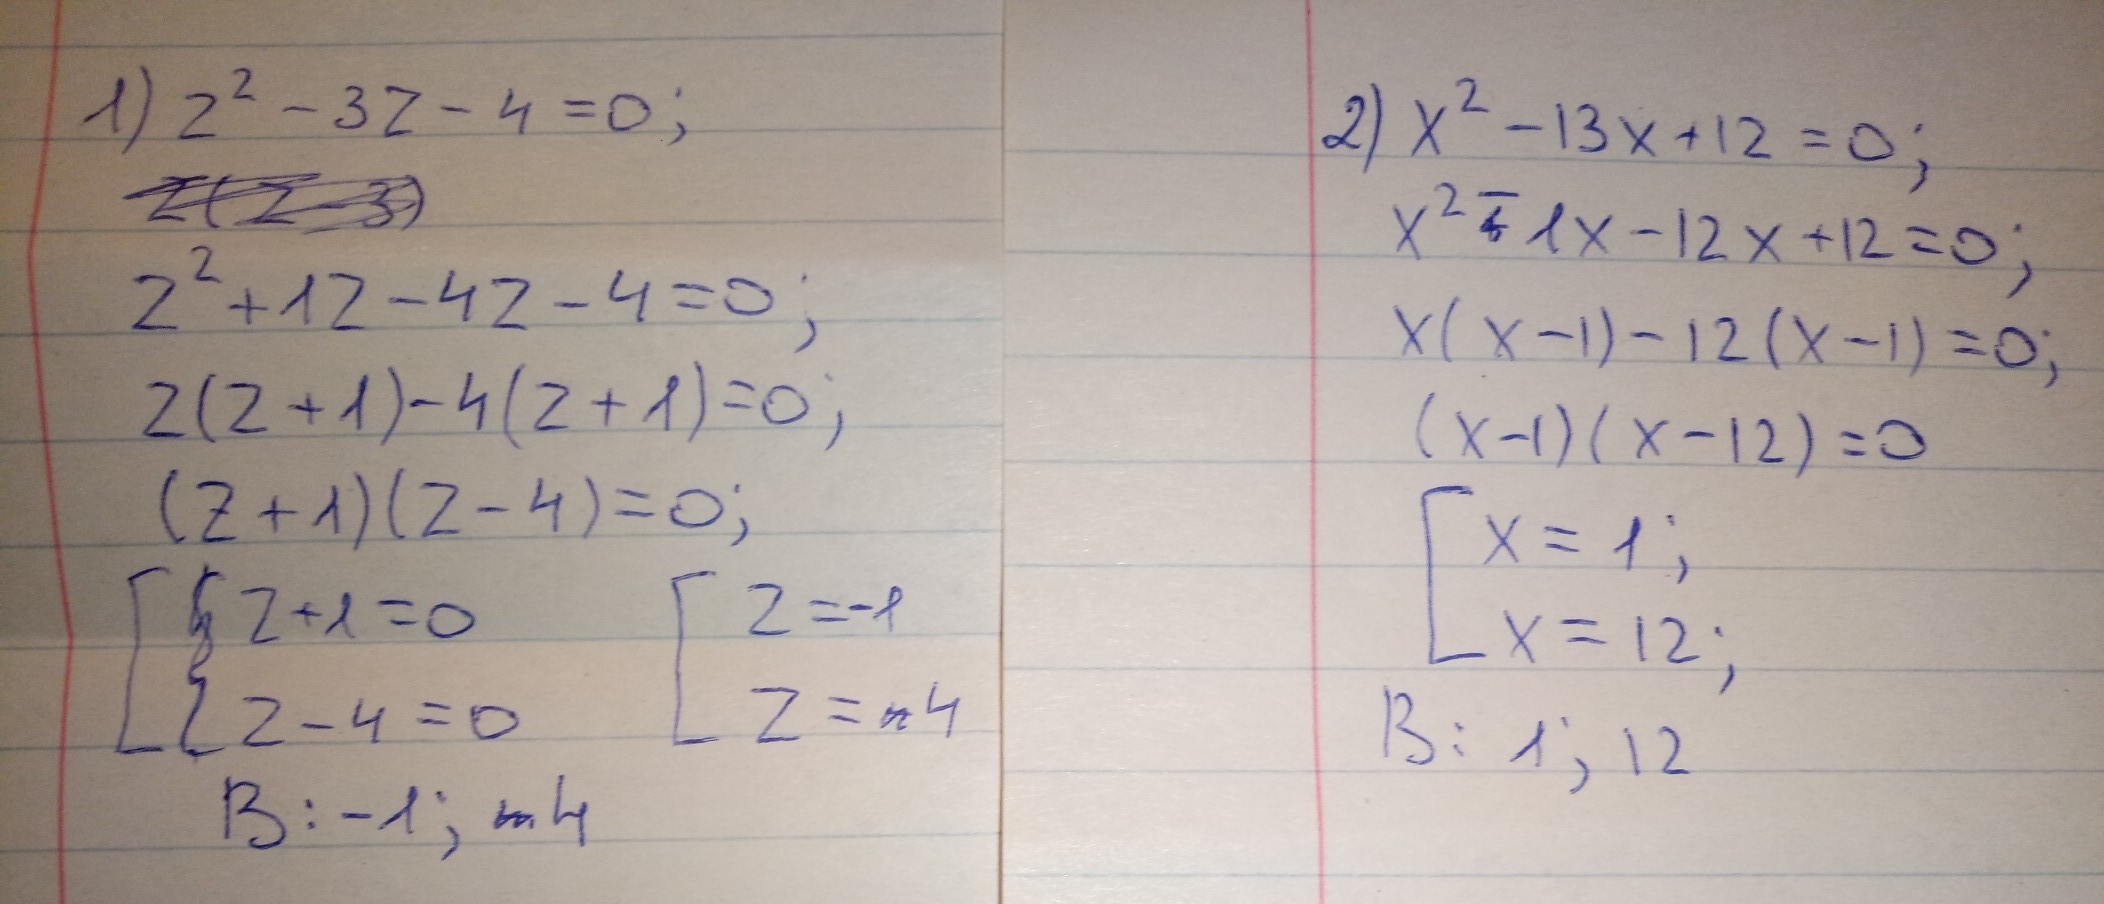 1) z² - 3z - 4 = 0;
z(z-3)
z² + 1z - 4z - 4 = 0;
z(z+1) - 4(z+1) = 0;
(z+1)(z-4) = 0;
z+1 = 0
z-4 = 0
z = -1
z = 4
В: -1; 4
2) x² - 13x + 12 = 0;
x² - 1x - 12x + 12 = 0;
x(x-1) - 12(x-1) = 0;
(x-1)(x-12) = 0
x = 1;
x = 12;
В: 1; 12